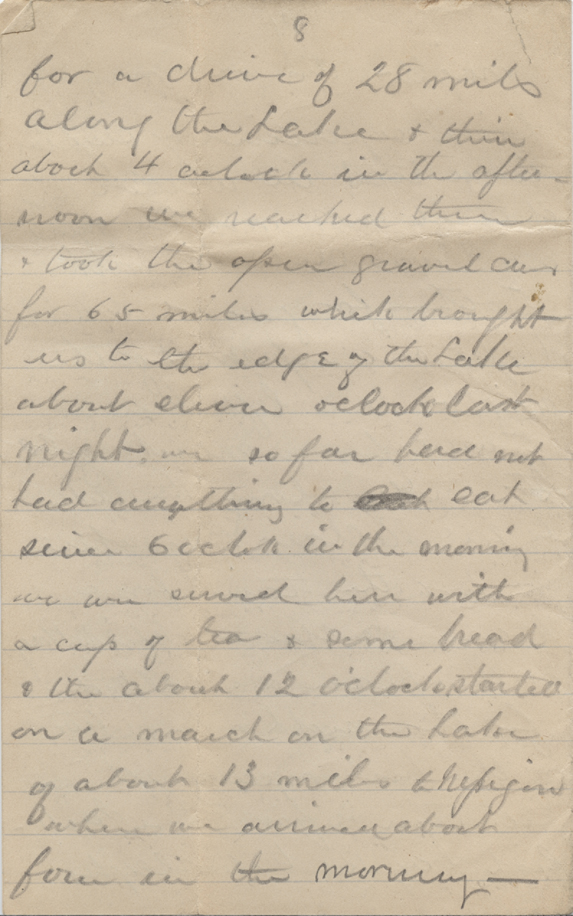 8
for a drive of 28 miles
along the Lake & then
about 4 oclock in the after-
noon we reached there
& took the open gravel cars
for 65 miles which brought
us to the edge of the Lake
about eleven oclock last
night. we so far had not
had anything to eat
since 6 oclok in the morning
we were served here with
a cup of tea & some bread
& the about 12 oclock started
on a march on the Lake
of about 13 miles to Nepigon
where we arrived about
four in the morning —